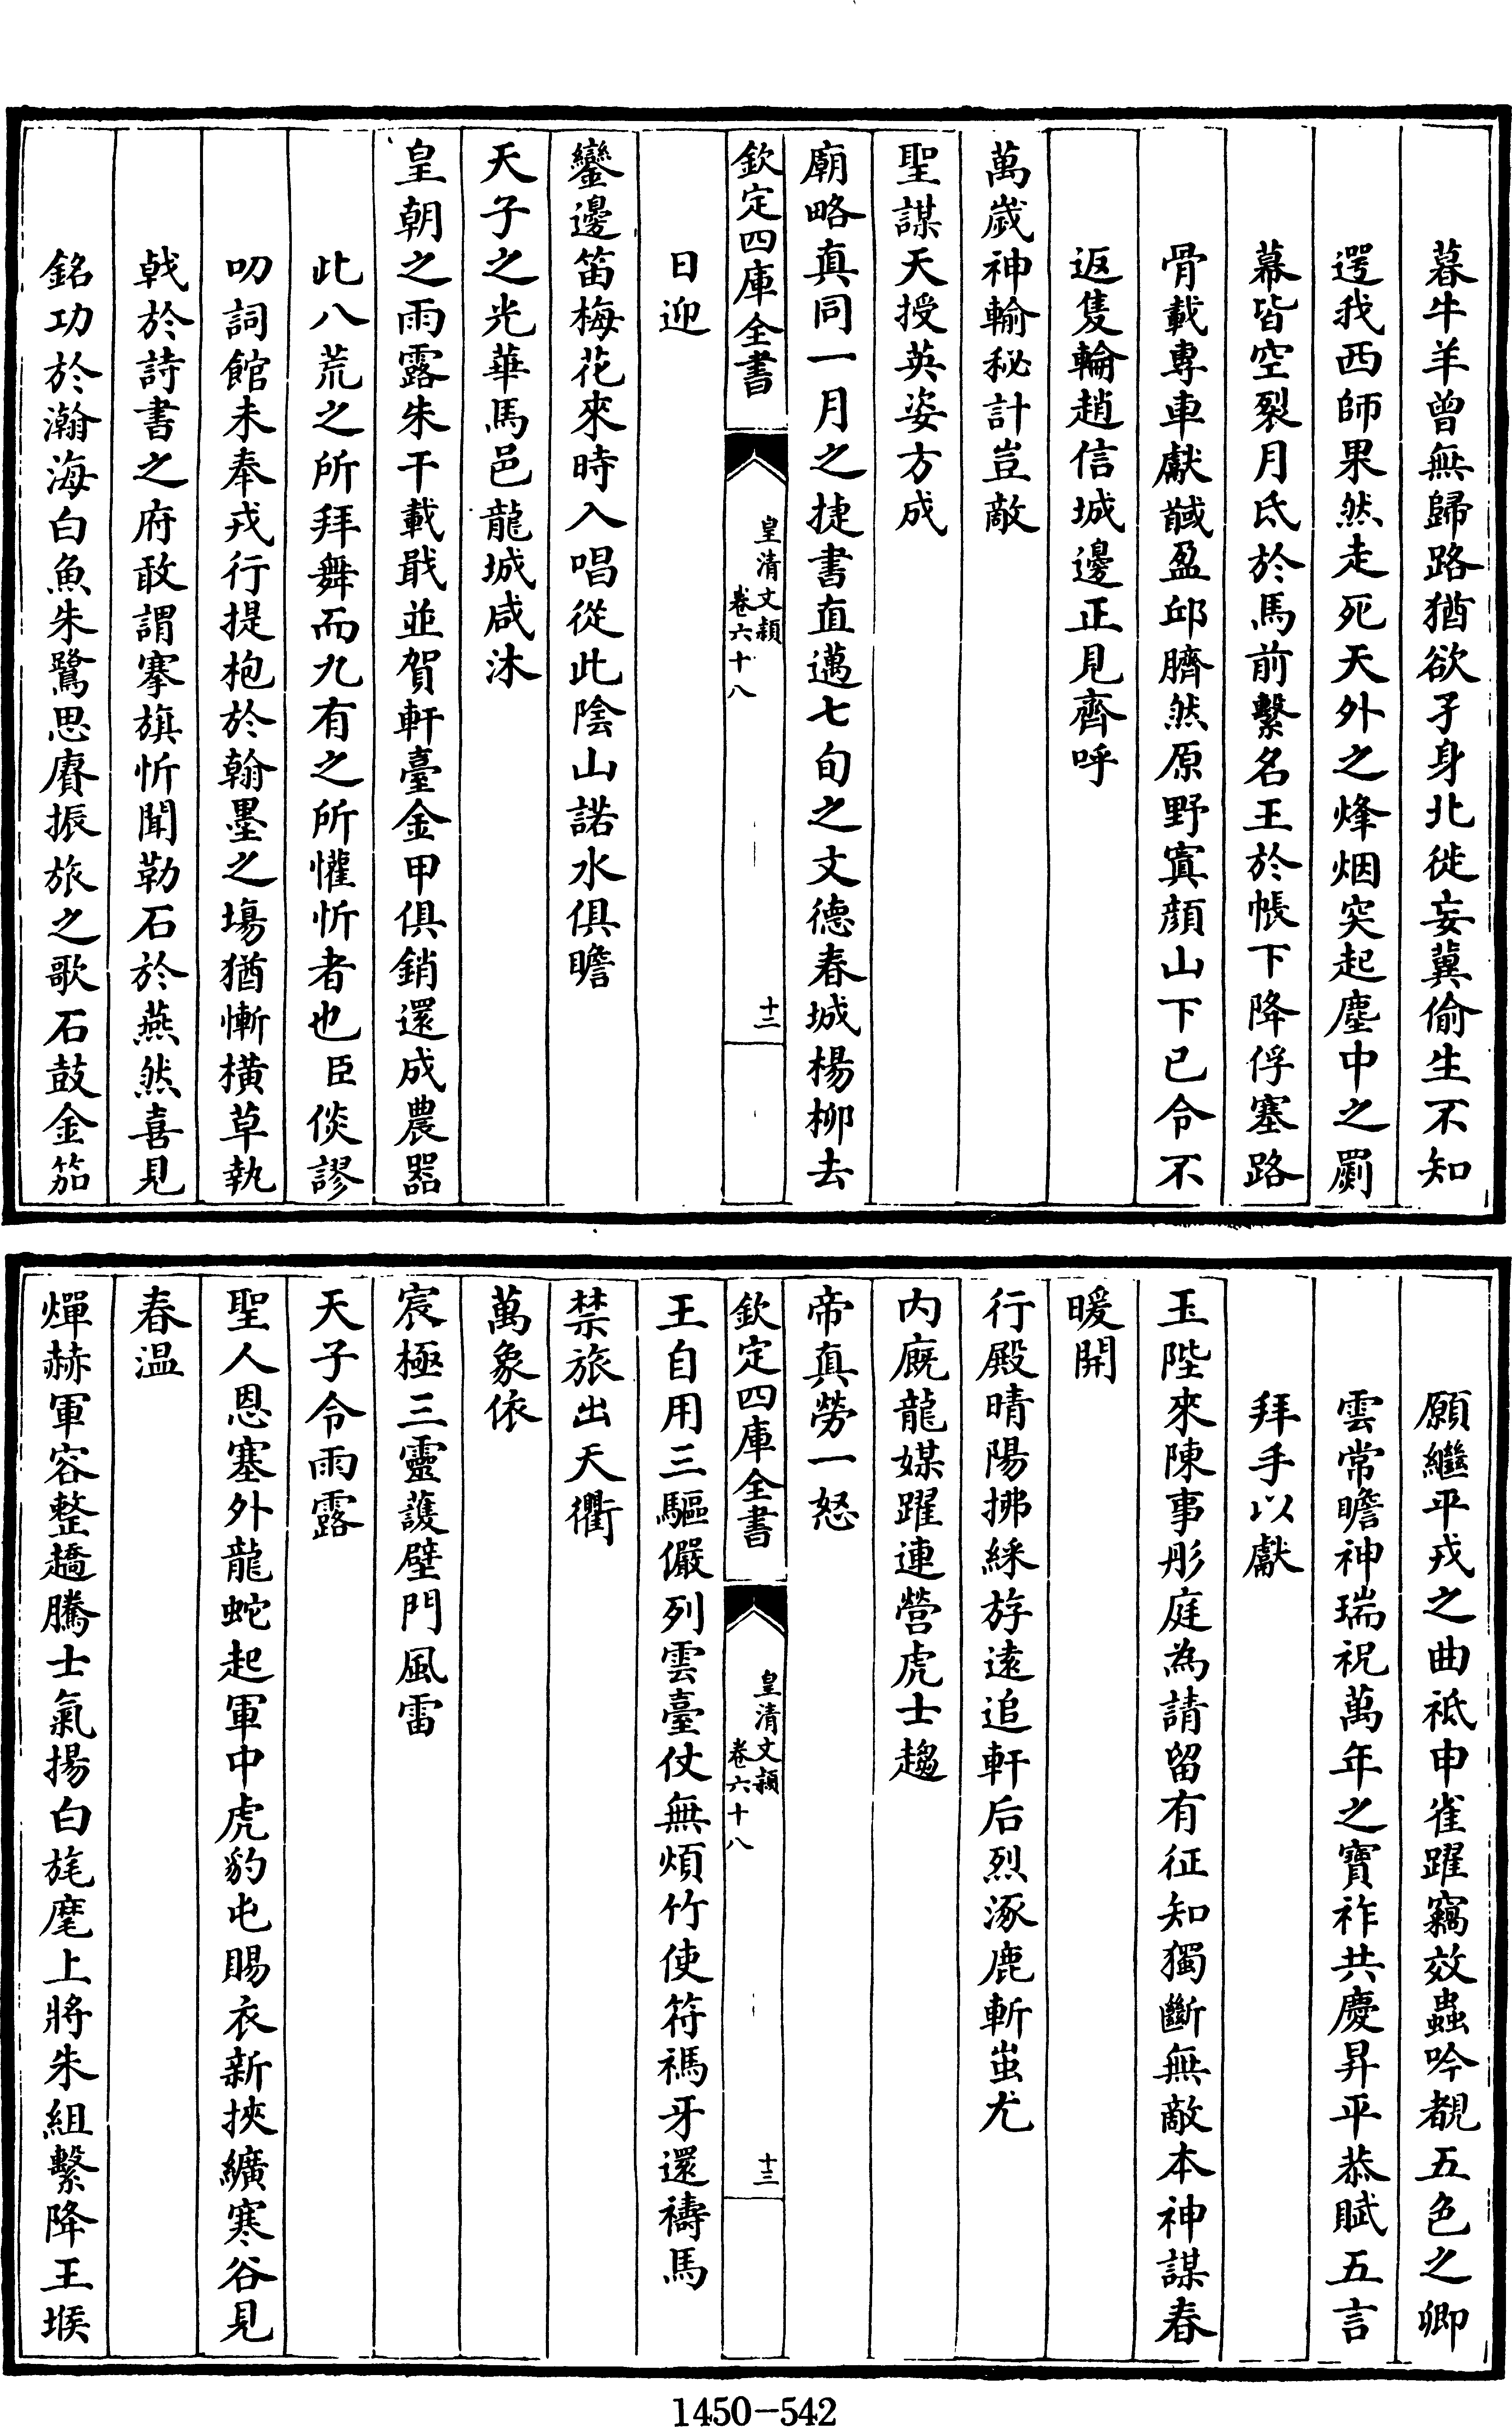 暮牛羊曾無歸路猶欲孑身北徙妄冀偷生不知
遌我西師果然走死天外之烽烟突起塵中之罽
幕皆空裂月氐於馬前繫名王於帳下降俘塞路
骨載專車獻馘盈邱臍然原野寘顔山下已令不
返隻輪趙信城邊正見齊呼
萬歲神輸秘計豈敵
聖謀天授英姿方成
廟略真同一月之捷書直邁七旬之文德春城楊柳去
欽定四庫全書
皇清文穎
卷六十八
十二
日迎
鑾邊笛梅花來時入唱從此陰山諾水俱瞻
天子之光華馬邑龍城咸沐
皇朝之雨露朱干載戢並賀軒臺金甲俱銷還成農器
此八荒之所拜舞而九有之所懽忻者也臣倓謬
叨詞館未奉戎行提枹於翰墨之塲猶慚橫草執
戟於詩書之府敢謂搴旗忻聞勒石於燕然喜見
銘功於瀚海白魚朱鷺思賡振旅之歌石鼓金笳
願繼平戎之曲祗申雀躍竊效蟲吟覩五色之卿
雲常瞻神瑞祝萬年之寶祚共慶昇平恭賦五言
拜手以獻
玉陛來陳事彤庭為請留有征知獨斷無敵本神謀春
暖開
行殿晴陽拂綵斿遠追軒后烈涿鹿斬蚩尤
内廐龍媒躍連營虎士趨
帝真勞一怒
欽定四庫全書
皇清文穎
卷六十八
十三
王自用三驅儼列雲臺仗無煩竹使符禡牙還禱馬
禁旅出天衢
萬象依
宸極三靈䕶壁門風雷
天子令雨露
聖人恩塞外龍蛇起軍中虎豹屯賜衣新挾纊寒谷見
春温
燀赫軍容整趫騰士氣揚白旄麾上將朱組繫降王堠
1450-542